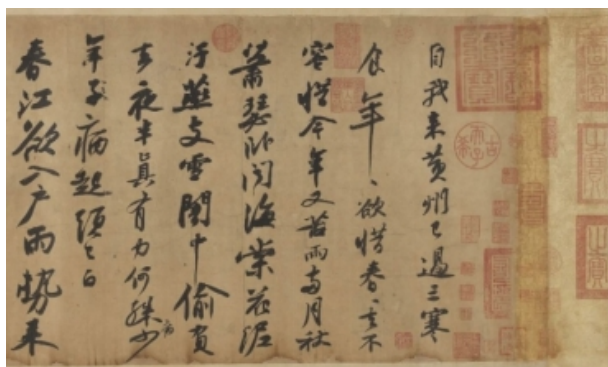 自我来黄州已過三寒
食年〻欲惜春〻去不
容惜今年又苦雨兩月秋
蕭瑟卧聞海棠花泥
汙燕支雪闇中偷負
去夜半真有力何殊少病
年子病起頭已白
春江欲入戶雨勢来
古希天子